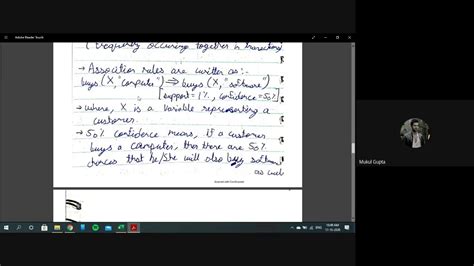 Adobe Reader Touch
( frequently occuring together in transactions)
→ Association rules are written as:-
buys (X, "computer") ⇒ buys (X, "software")
[support = 1%, confidence = 50%]
→ where, X is a variable representing a
customer.
→ 50% confidence means, if a customer
buys a computer, then there are 50%
chances that he/she will also buy software
as well
Mukul Gupta
ENG